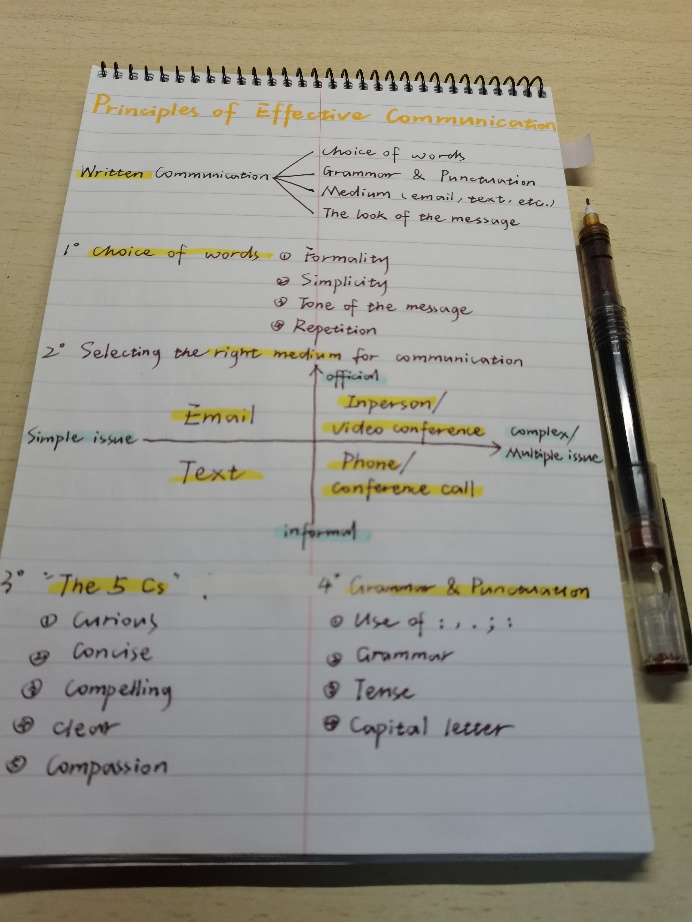 Principles of Effective Communication
Written Communication
Choice of words
Grammar & Punctuation
Medium (email, text, etc.)
The look of the message
1° choice of words ① Formality
② Simplicity
③ Tone of the message
④ Repetition
2° Selecting the right medium for communication
official
Email
Inperson/
video conference
Simple issue
complex/
Multiple issue
Text
Phone/
conference call
informal
3° "The 5 Cs"
① Curious
② Concise
③ Compelling
④ clear
⑤ Compassion
4° Grammar & Punctuation
① Use of : , . ; :
② Grammar
③ Tense
④ Capital letter